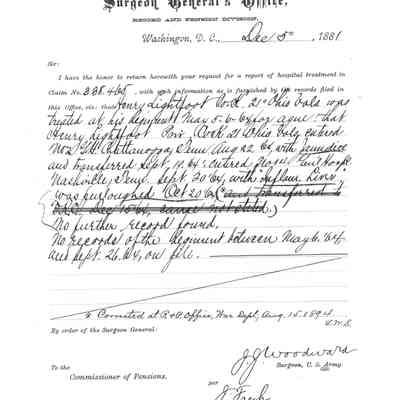 Surgeon General's Office,
RECORD AND PENSION DIVISION,
Washington, D. C., Dec 5th, 1881
Sir:
I have the honor to return herewith your request for a report of hospital treatment in
Claim No. 238,465, with such information as is furnished by the records filed in
this Office, viz: that Henry Lightfoot Co K 21st Ohio Vols was
treated at his Regiment May 5-6-64 for ague - that
Henry Lightfoot Pvt. Co K 21 Ohio Vols entered
No 2 G.H. Chattanooga, Tenn Aug 22 64 with jaundice
and transferred Sept. 19. 64: entered Genl Hosp.
Nashville, Tenn. Sept 20 64, with Inflam Liver
was furloughed Oct 20 64 (and transferred to
Dec 15 64, cause not stated.)
No further record found.
No records of the Regiment between May 6. 64
and Sept. 26. 64, on file.
Corrected at R & P Office, War Dept, Aug. 15. 1894
By order of the Surgeon General:
J. J. Woodward
Surgeon, U. S. Army
To the
Commissioner of Pensions.
per